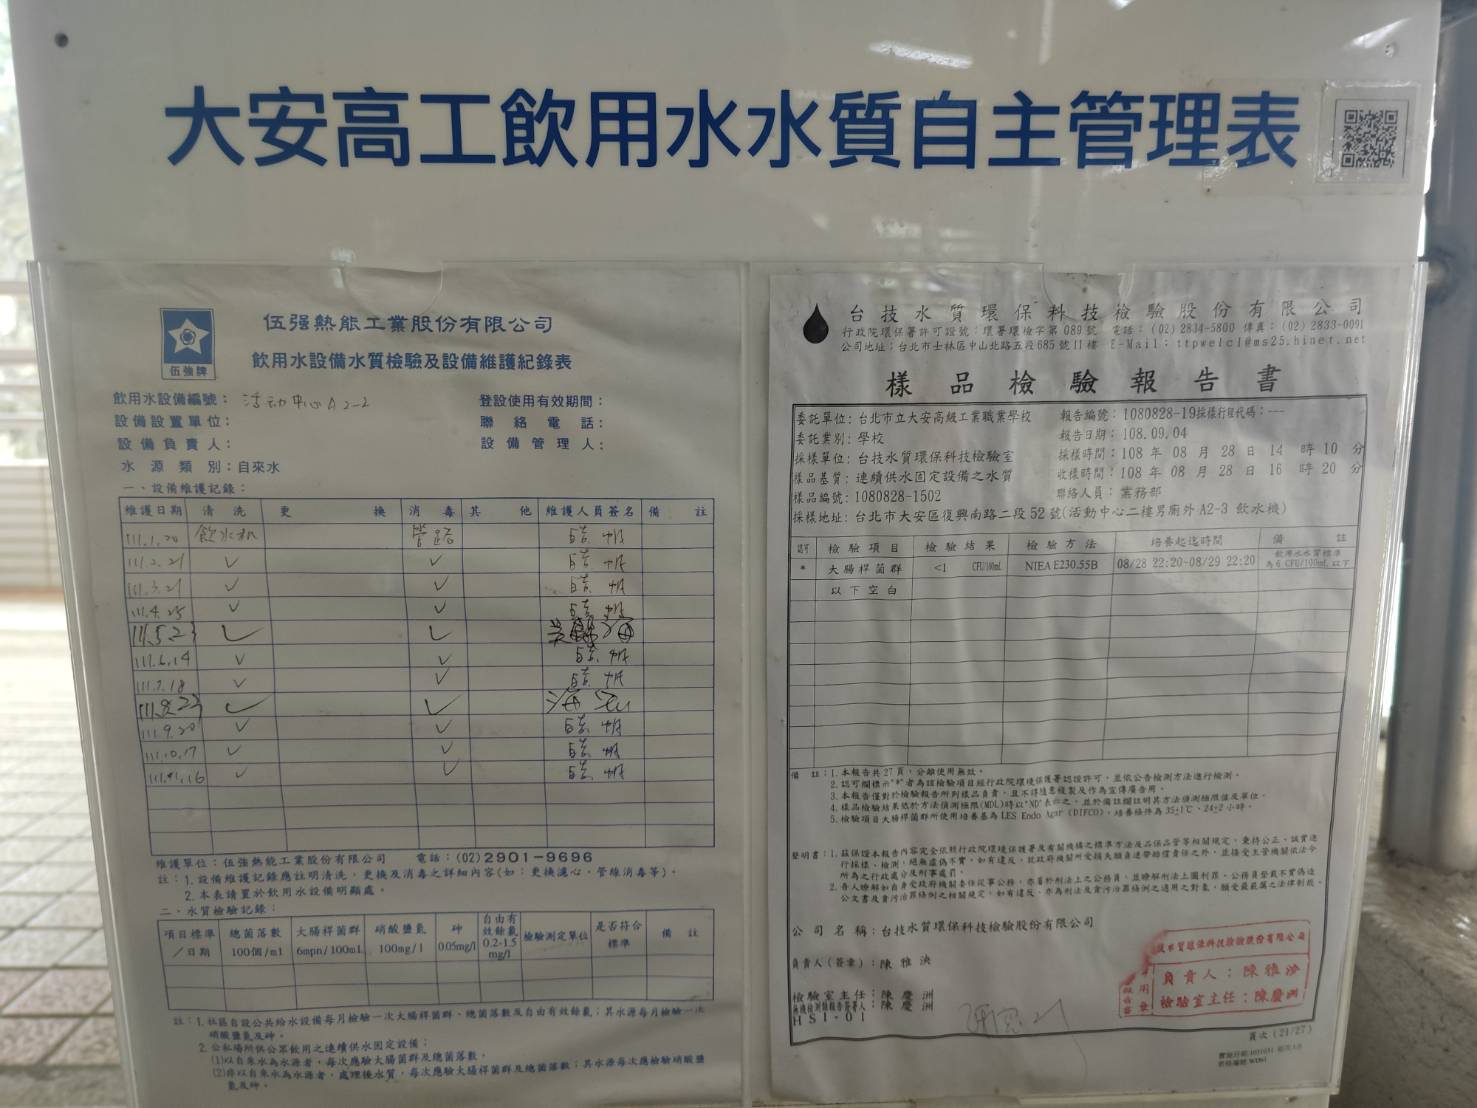 大安高工飲用水水質自主管理表
伍強牌
伍强熱能工業股份有限公司
飲用水設備水質檢驗及設備維護紀錄表
飲用水設備編號：活动中心A2-2
登設使用有效期間：
設備設置單位：
聯絡電話：
設備負責人：
設備管理人：
水源類別：自來水
一、設備維護記錄：
維護日期 清洗 更換 消毒 其他 維護人員簽名 備註
111.1.20 飲水机 管路
111.2.21 ✓ ✓
111.3.21 ✓ ✓
111.4.25 ✓ ✓
111.5.23 ✓ ✓
111.6.14 ✓ ✓
111.7.18 ✓ ✓
111.8.22 ✓ ✓
111.9.20 ✓ ✓
111.10.17 ✓ ✓
111.11.16 ✓ ✓
維護單位：伍強熱能工業股份有限公司 電話：(02)2901-9696
註：1.設備維護記錄應註明清洗，更換及消毒之詳細內容(如：更換濾心、管線消毒等)。
2.本表請置於飲用水設備明顯處。
二、水質檢驗記錄：
項目標準／日期 總菌落數 100個/ml 大腸桿菌群 6mpn/100ml 硝酸鹽氮 100mg/l 砷 0.05mg/l 自由有效餘氯 0.2-1.5 mg/l 檢驗測定單位 是否符合標準 備註
註：1.社區自設公共給水設備每月檢驗一次大腸桿菌群、總菌落數及自由有效餘氯；其水源每月檢驗一次
硝酸鹽氮及砷。
2.公私場所供公眾飲用之連續供水固定設備：
(1)以自來水為水源者，每次應驗大腸菌群及總菌落數。
(2)非以自來水為水源者，處理後水質，每次應驗大腸桿菌群及總菌落數；其水源每次應檢驗硝酸鹽
氮及砷。
台技水質環保科技檢驗股份有限公司
行政院環保署許可證號：環署環檢字第089號 電話：(02)2834-5800 傳真：(02)2833-0091
公司地址：台北市士林區中山北路五段685號11樓 E-Mail：ttpwelcl@ms25.hinet.net
樣品檢驗報告書
委託單位：台北市立大安高級工業職業學校
報告編號：1080828-19採樣行程代碼：---
委託業別：學校
報告日期：108.09.04
採樣單位：台技水質環保科技檢驗室
採樣時間：108年08月28日14時10分
樣品基質：連續供水固定設備之水質
收樣時間：108年08月28日16時20分
樣品編號：1080828-1502
聯絡人員：業務部
採樣地址：台北市大安區復興南路二段52號(活動中心二樓男廁外A2-3飲水機)
認可 檢驗項目 檢驗結果 檢驗方法 培養起迄時間 備註
* 大腸桿菌群 <1 CFU/100mL NIEA E230.55B 08/28 22:20-08/29 22:20 飲用水水質標準為6 CFU/100mL以下
以下空白
備註：1.本報告共27頁，分離使用無效。
2.認可欄標示"*"者為該檢驗項目經行政院環境保護署認證許可，並依公告檢測方法進行檢測。
3.本報告僅對於檢驗報告所列樣品負責，且不得隨意複製及作為宣傳廣告用。
4.樣品檢驗結果低於方法偵測極限(MDL)時以"ND"表示之，並於備註欄註明其方法偵測極限值及單位。
5.檢驗項目大腸桿菌群所使用培養基為LES Endo Agar (DIFCO)，培養條件為35±1℃、24±2小時。
聲明書：1.茲保證本報告內容完全依照行政院環境保護署及有關機構之標準方法及品保品管等相關規定，秉持公正、誠實進
行採樣、檢測，絕無虛偽不實，如有違反，就政府機關所受損失願負連帶賠償責任之外，並接受主管機關依法令
所為之行政處分及刑事處罰。
2.吾人瞭解如自身受政府機關委任從事公務，亦屬於刑法上之公務員，並瞭解刑法上圖利罪、公務員登載不實偽造
公文書及貪污治罪條例之相關規定，如有違反，亦為刑法及貪污治罪條例之適用之對象，願受最嚴厲之法律制裁。
公司名稱：台技水質環保科技檢驗股份有限公司
負責人(簽章)：陳雅泱
檢驗室主任：陳慶洲
陳慶洲
HSI-01
負責人：陳雅泱
檢驗室主任：陳慶洲
頁次(21/27)